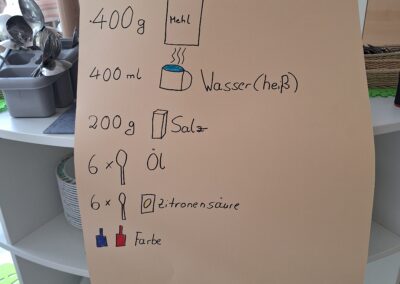 400g Mehl
400 ml Wasser (heiß)
200 g Salz
6 × Öl
6 × Zitronensäure
Farbe